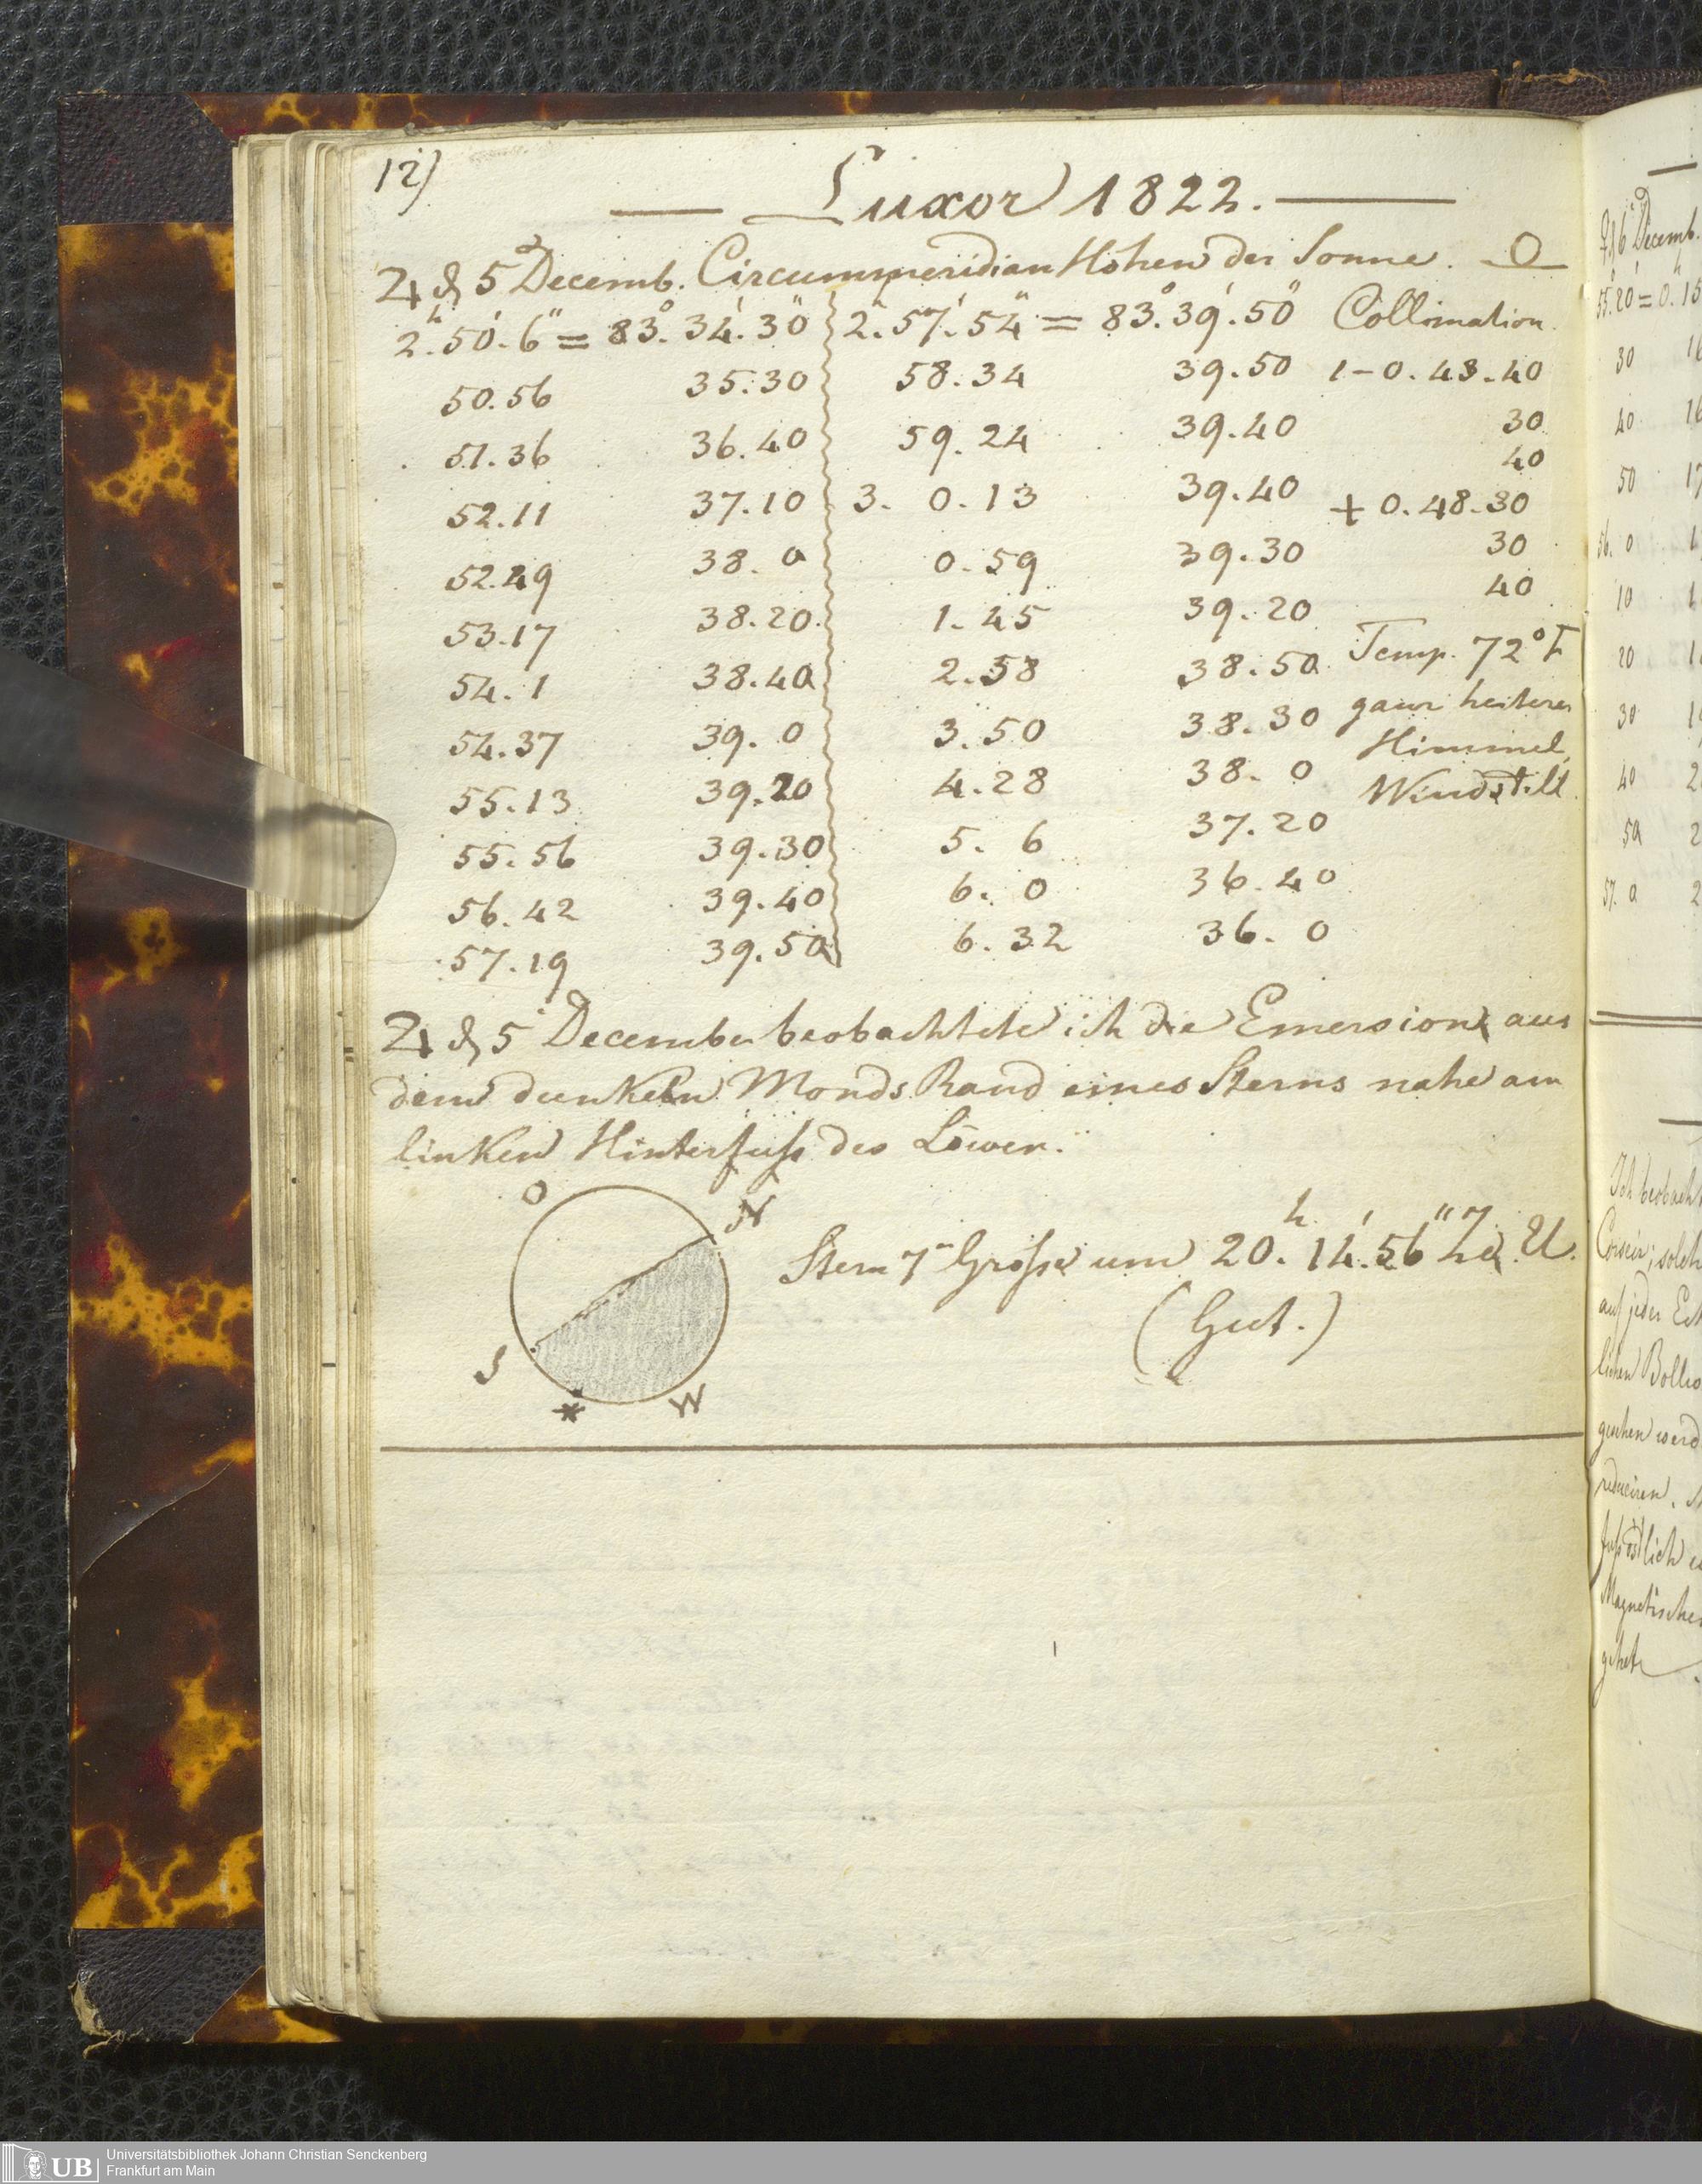 12)
Luxor 1822.
♃ d 5ᵗ Decemb. Circummeridian Höhen der Sonne. O
2ʰ.50′.6″ = 83°.34′.30″ 2ʰ.57′.54″ = 83°.39′.50″ Collimation.
50.56 35.30 58.34 39.50 1-0.48.40
51.36 36.40 59.24 39.40 30
40
52.11 37.10 3. 0.13 39.40 + 0.48.30
52.49 38. 0 0.59 39.30 30
40
53.17 38.20. 1.45 39.20
54. 1 38.40 2.58 38.50 Temp. 72° F
54.37 39. 0 3.50 38.30 ganz heiterer
Himmel,
55.13 39.20 4.28 38. 0 Windstill.
55.56 39.30 5. 6 37.20
56.42 39.40 6. 0 36.40
57.19 39.50 6.32 36. 0
♃ d 5ᵗ December beobachtete ich die Emersion aus
dem dunkeln Monds Rand eines Sterns nahe am
linken Hinterfuß des Löwen.
O N
Stern 7ʳ Größe um 20ʰ.14′.56″ U.
(Gut.)
S * W
6 Decemb.
55.20 = 0.15
30 16
40
50
56. 0
10
20
30
40
50
57. 0
Ich beobach
auf jeder
gesehen werd
reduciren.
Magnetische
gehet
UB Universitätsbibliothek Johann Christian Senckenberg
Frankfurt am Main